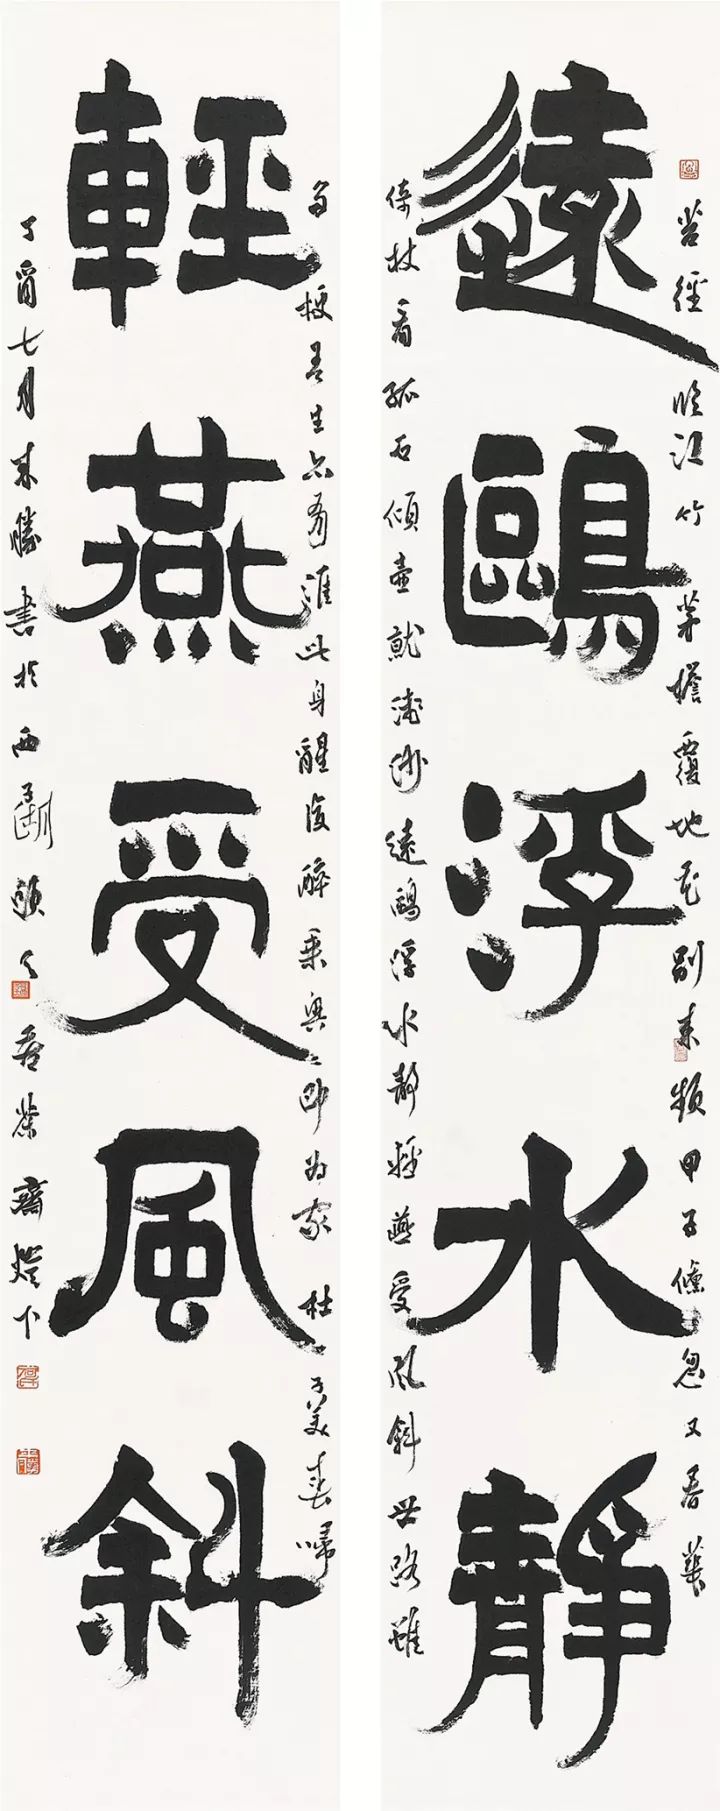 苔徑臨江竹茅檐覆地花別來頻甲子倏忽又春華
遠鷗浮水靜
倚杖看孤石傾壺就淺沙遠鷗浮水靜輕燕受風斜世路雖
多梗吾生亦有涯此身醒復醉乘興即為家杜子美春歸
輕燕受風斜
丁酉七月書於西子湖頭齋燈下